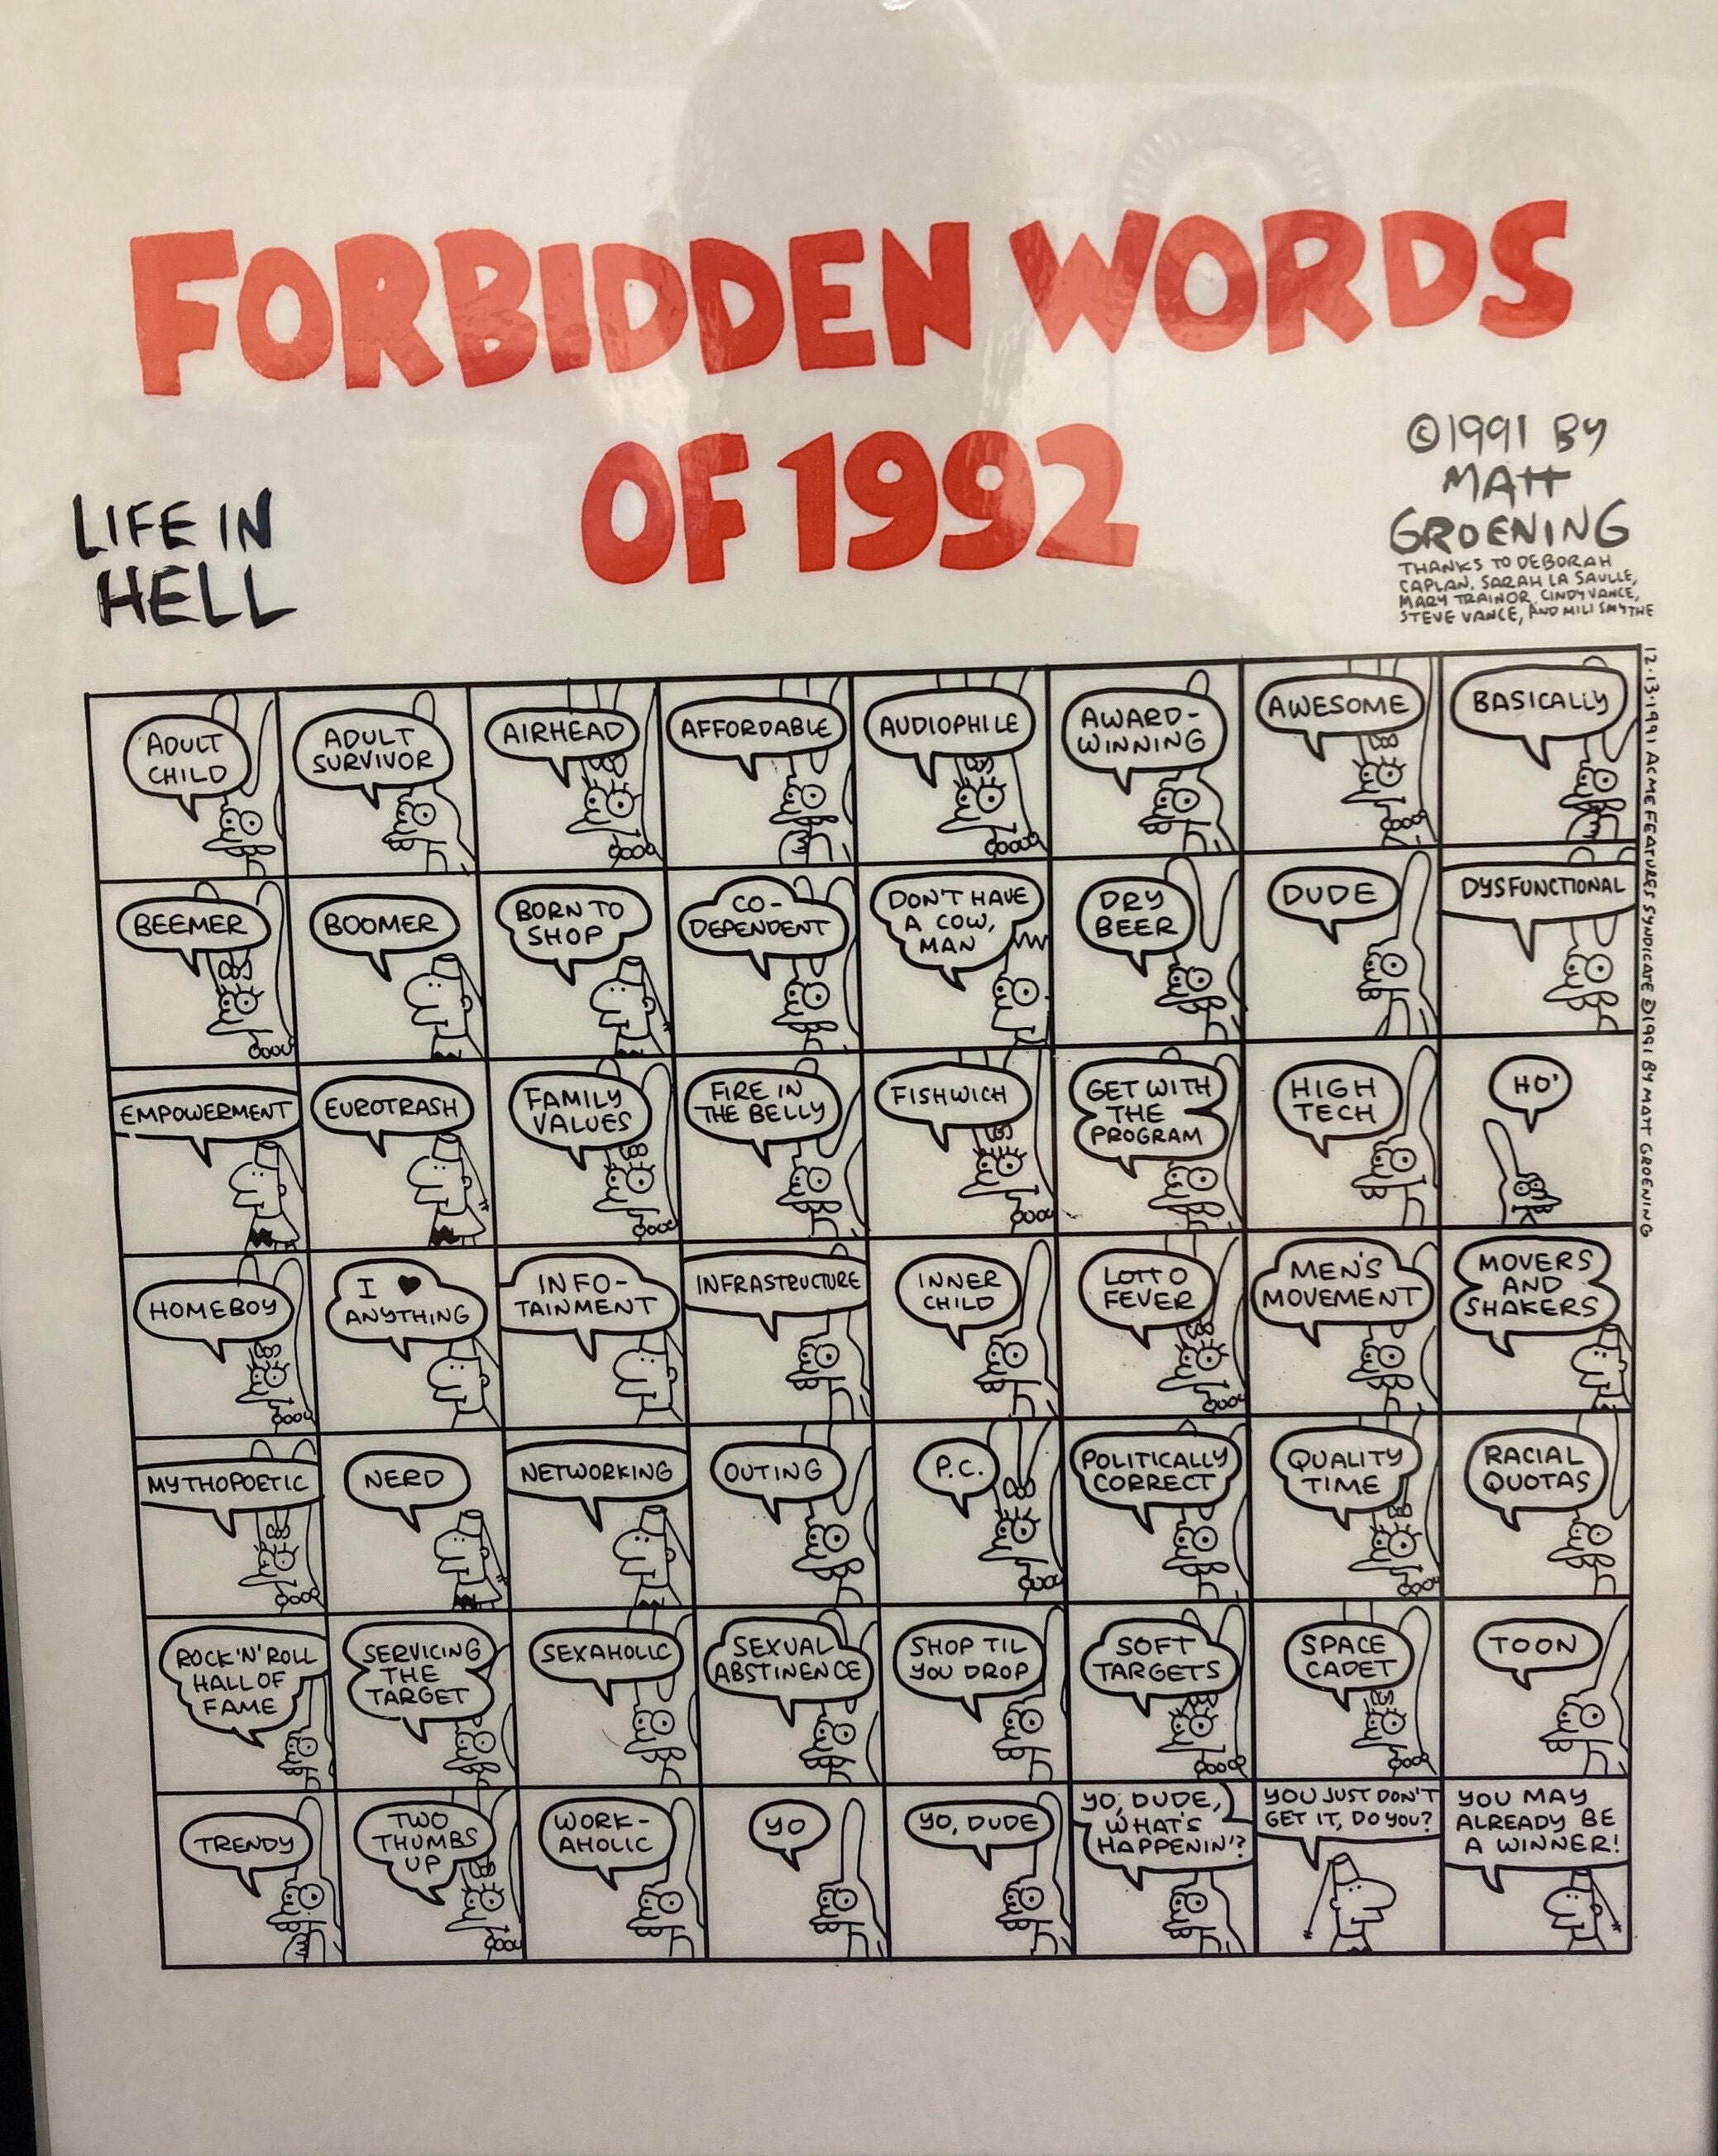 FORBIDDEN WORDS
OF 1992
LIFE IN
HELL
©1991 BY
MATT
GROENING
THANKS TO DEBORAH
CAPLAN, SARAH LA SAULLE,
MARY TRAINOR, CINDY VANCE,
STEVE VANCE, AND MILI SMYTHE
12·13·1991 ACME FEATURES SYNDICATE ©1991 BY MATT GROENING
ADULT
CHILD
ADULT
SURVIVOR
AIRHEAD
AFFORDABLE
AUDIOPHILE
AWARD-
WINNING
AWESOME
BASICALLY
BEEMER
BOOMER
BORN TO
SHOP
CO-
DEPENDENT
DON'T HAVE
A COW,
MAN
DRY
BEER
DUDE
DYSFUNCTIONAL
EMPOWERMENT
EUROTRASH
FAMILY
VALUES
FIRE IN
THE BELLY
FISHWICH
GET WITH
THE
PROGRAM
HIGH
TECH
HO'
HOMEBOY
I ♥
ANYTHING
INFO-
TAINMENT
INFRASTRUCTURE
INNER
CHILD
LOTTO
FEVER
MEN'S
MOVEMENT
MOVERS
AND
SHAKERS
MYTHOPOETIC
NERD
NETWORKING
OUTING
P.C.
POLITICALLY
CORRECT
QUALITY
TIME
RACIAL
QUOTAS
ROCK'N'ROLL
HALL OF
FAME
SERVICING
THE
TARGET
SEXAHOLIC
SEXUAL
ABSTINENCE
SHOP TIL
YOU DROP
SOFT
TARGETS
SPACE
CADET
TOON
TRENDY
TWO
THUMBS
UP
WORK-
AHOLIC
YO
YO, DUDE
YO, DUDE,
WHAT'S
HAPPENIN'?
YOU JUST DON'T
GET IT, DO YOU?
YOU MAY
ALREADY BE
A WINNER!